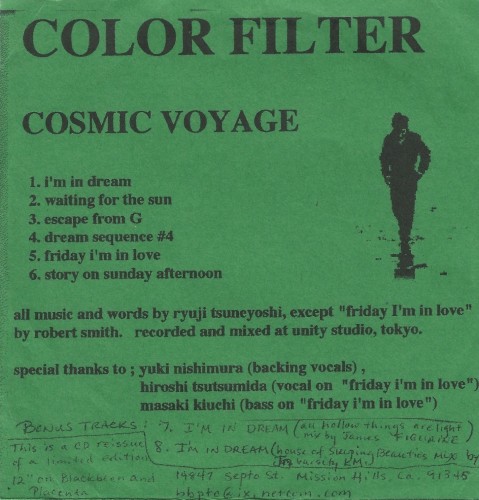 COLOR FILTER
COSMIC VOYAGE
1. i'm in dream
2. waiting for the sun
3. escape from G
4. dream sequence #4
5. friday i'm in love
6. story on sunday afternoon
all music and words by ryuji tsuneyoshi, except "friday I'm in love"
by robert smith. recorded and mixed at unity studio, tokyo.
special thanks to ; yuki nishimura (backing vocals) ,
hiroshi tsutsumida (vocal on "friday i'm in love")
masaki kiuchi (bass on "friday i'm in love")
BONUS TRACKS : 7. I'M IN DREAM (all hollow things are light)
mix by James FIGURINE
This is a CD reissue
8. I'm IN DREAM (house of Sleeping Beauties mix by
of a limited edition
12" on Blackbean and
Placenta
14847 Septo St. Mission Hills, Ca. 91345
bbptc@ix.netcom.com